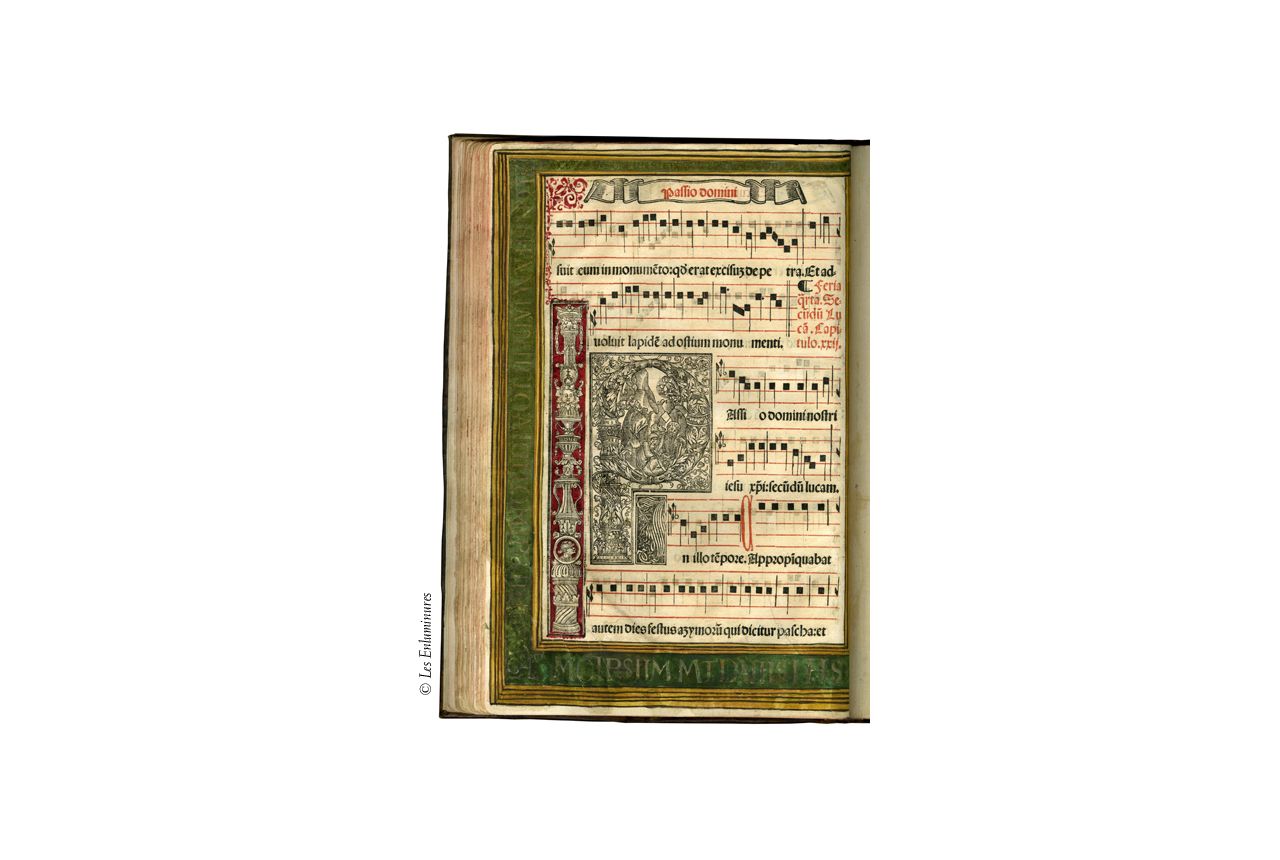 Passio domini
suit eum in monumẽto: qđ erat excisuʒ de petra. Et ad-
uoluit lapidẽ ad ostium monumenti.
¶ Feria
q̃rta. Se-
cũdũ Lu
cã. Capi-
tulo. xxij.
Assio domini nostri
iesu xp̃i: secũdũ lucam.
In illo tẽpore. Appropĩquabat
autem dies festus azymorũ qui dicitur pascha: et
© Les Enluminures